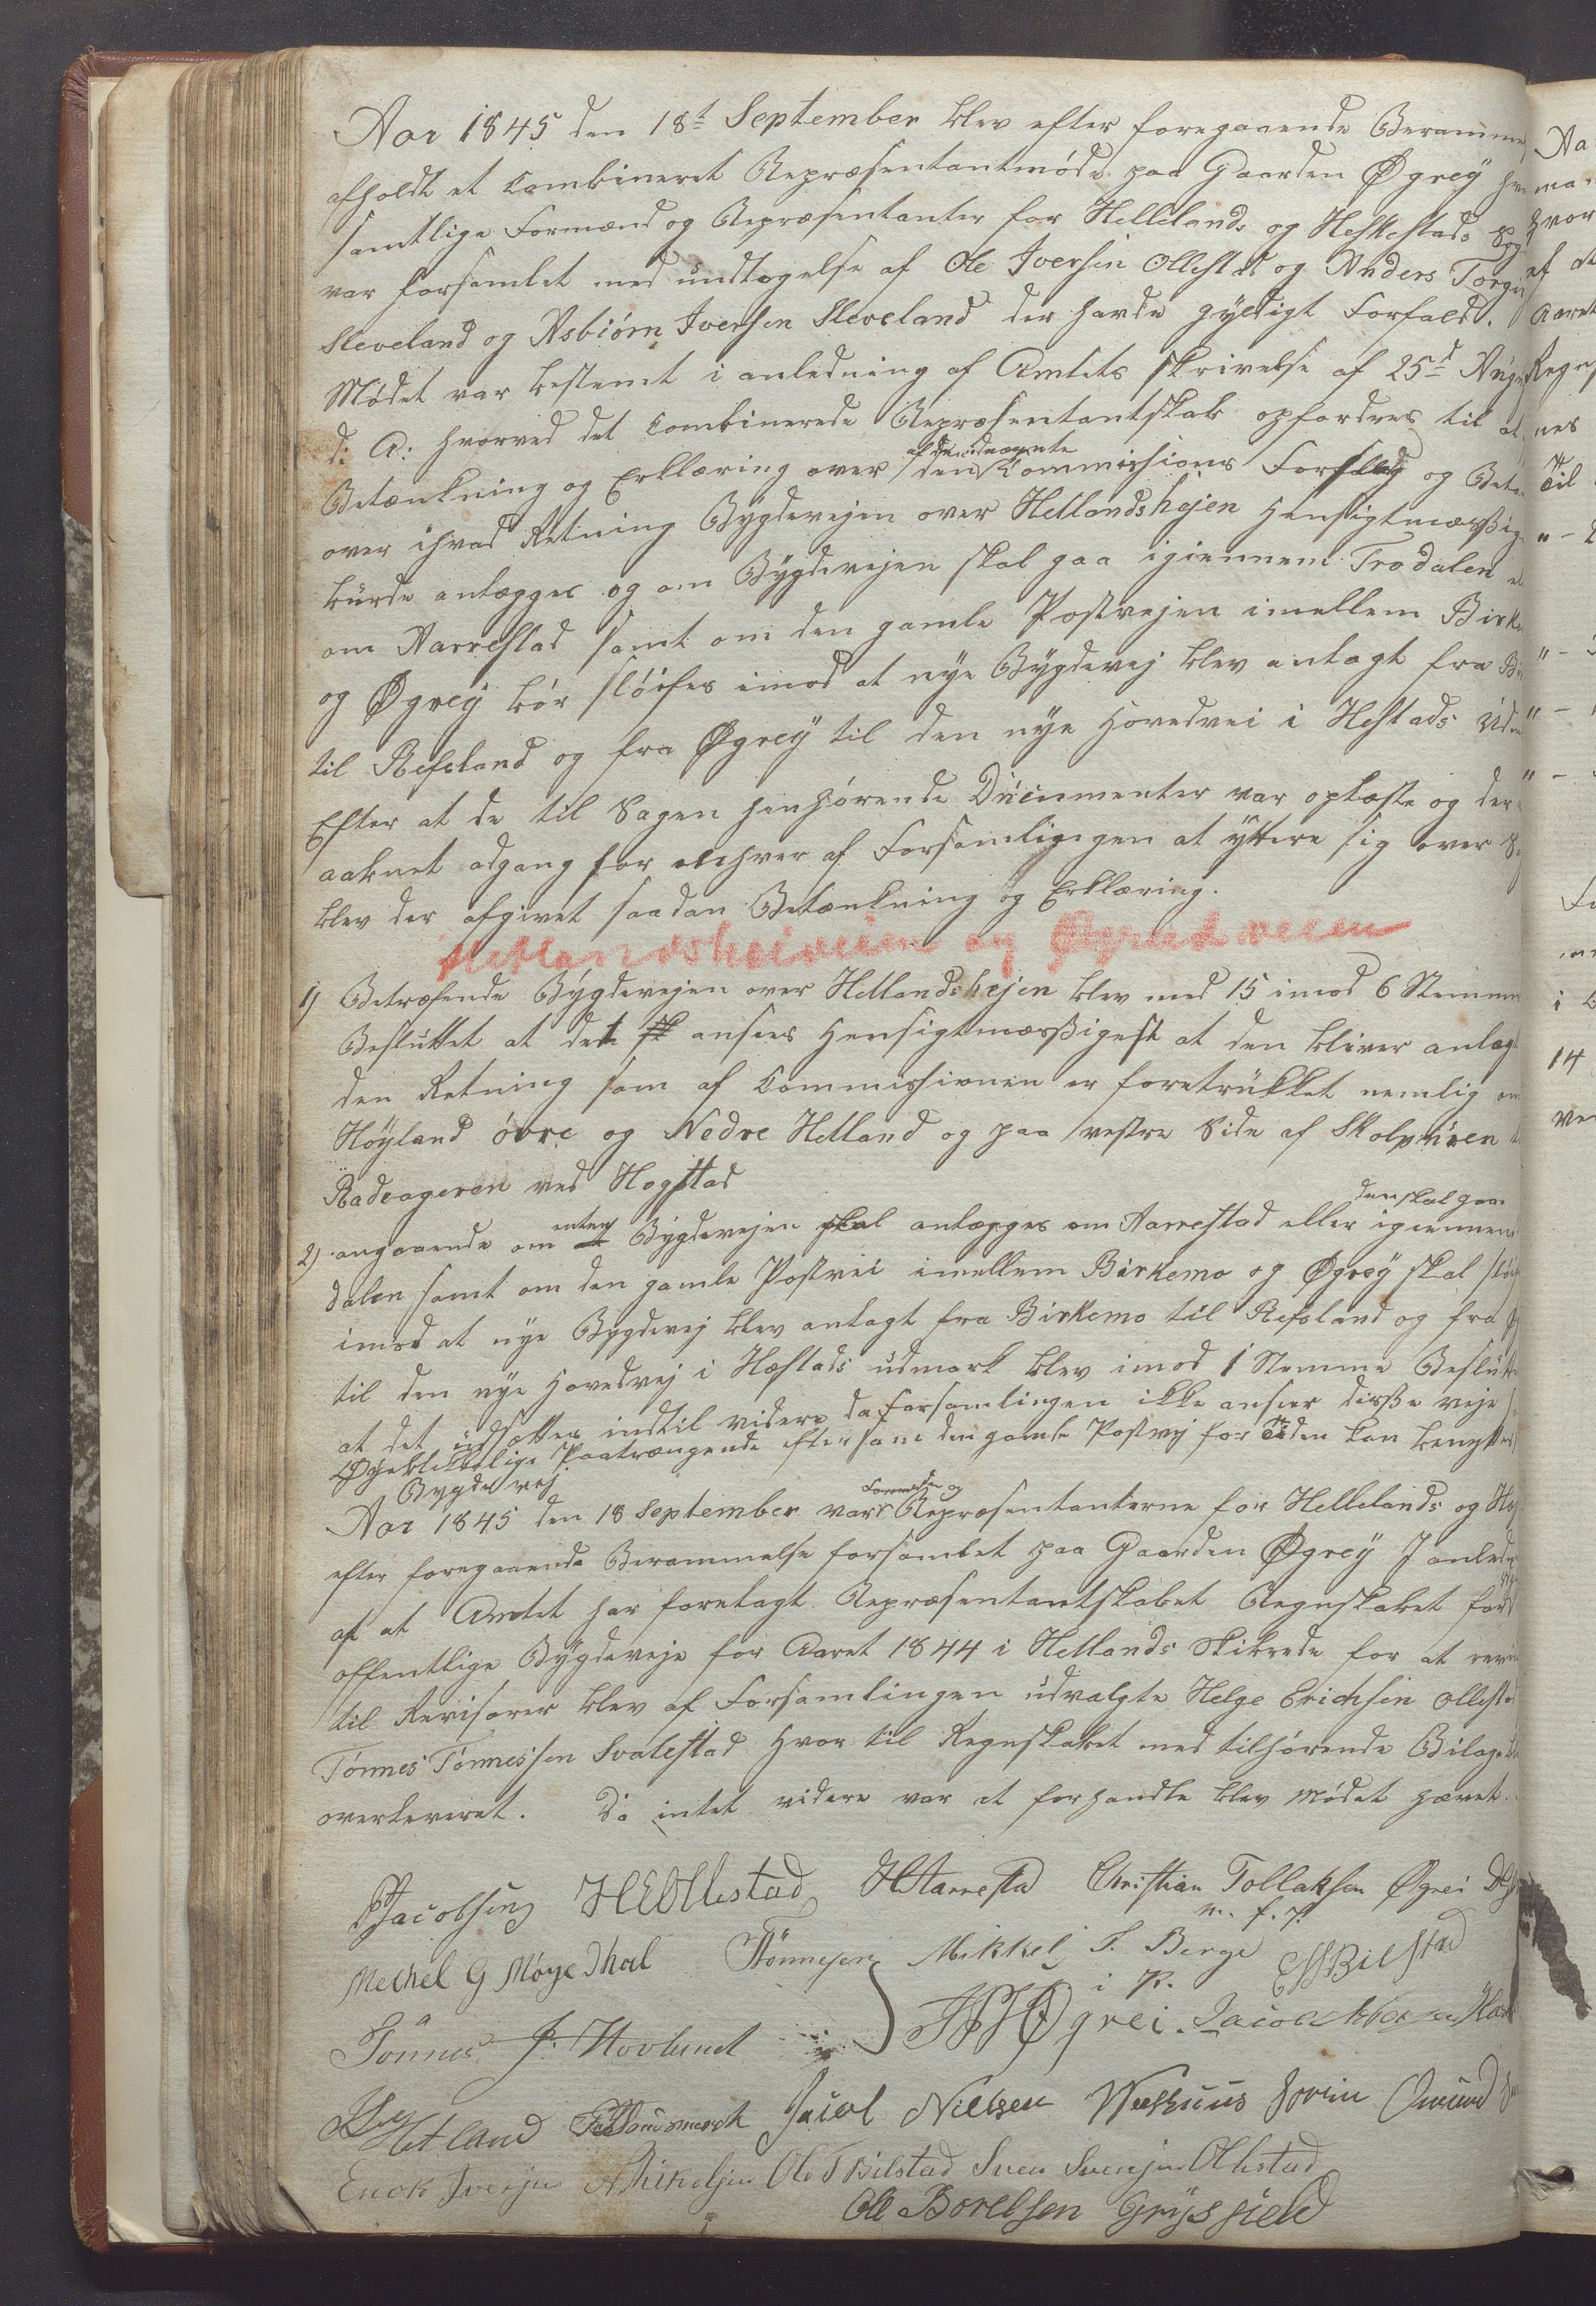 Aar 1845 den 18t September blev efter foregaaende Beramme
afholdt et Combineret Repræsentantmøde paa Gaarden Øgreÿ
samtlige Formænd og Repræsentanter for Hellelands og Heskestads
var forsamlet med undtagelse af Ole Iversen Ollestad og Anders Torge
Sleveland og Asbiørn Iversen Sleveland der havde gyldigt Forfald.
Mødet var bestemt i anledning af Amtets skrivelse af 25d Augu
d: A: hvorved det Combinerede Repræsentantskab opfordres til at
Betænkning og Erklæring over den af den udnævnte Commissions Forslag og Beta
over ihvad Retning Bygdevejen over Hellandshejen Hensigtmæssig
burde anlægges og om Bÿgdevejen skal gaa igiennem Trodalen
om Aarrestad samt om den gamle Postvejen imellem Birke
og Øgreÿ bør sløifes imod at nye Bygdevej blev anlagt fra
til Refsland og fra Øgreÿ til den nye Hovedvei i Hestads Udm
Efter at de til Sagen henhørende Documenter var oplæste og der
aabnet adgang for enhver af Forsamlingen at yttere sig over
blev der afgivet saadan Betænkning og Erklæring.
Hetlandsheiveien og Øgreidveien
1) Betræfende Bÿgdevejen over Hellandshejen blev med 15 imod 6 Stemme
Besluttet at det ansees Hensigtmæssigest at den bliver anlagt
den Retning som af Commissionen er foretrükket nemlig om
Höyland övre og Nedre Helland og paa vestre Side af
ved Hogstad
2) angaaende om enten Bygdevejen skal anlægges om Aarrestad eller den skal gaa igiennem
dalen samt om den gamle Postvei imellem Birkemo og Øgreÿ skal
imod at nye Bygdevej blev anlagt fra Birkemo til Refsland og fra
til den nye Hovedvej i Hæstads udmark blev imod 1 Stemme Beslutte
at det udsattes indtil videre da forsamlingen ikke anseer disse veje
Øyeblikkelige Paatrængende eftersom den gamle Postvej for Tiden kan benyttes
Bygdevej
Aar 1845 den 18 September var Formænd og Repræsentanterne for Hellelands og
efter foregaaende Berammelse forsamlet paa Gaarden Øgreÿ I anled
af at Amtet har forelagt Repræsentantskabet Regnskabet for
offentlige Bÿgdeveje for Aaret 1844 i Hellands Skibrede for at
til Revisorer blev af Forsamlingen udvalgte Helge Erichsen Ollesta
Tönnes Tönnessen Svalestad Hvor til Regnskabet med tilhørende Bilage
overleveret. Da intet videre var at forhandle blev Mødet hævet.
PJacobsen HEOllestad HAarrestad Christian Tollaksen Øgrei
m. f. P.
Mechel G Møgedhal TTönnesen Mikkel T. Berge ESBilstad
i P.
Tönnes J. Hovland Øgrei. Jacob
Hetland Jacob Nielsen Omund
Enok Iversen AMikelsen Ole TBilstad Sven Svensen Ollestad
Ole Borelsen Grÿsfield